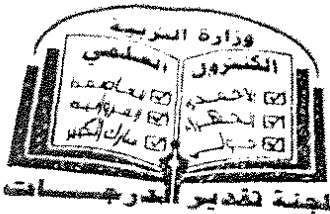 وزارة التربية
الكنترول العلمي
الاحمدي العاصمه
الجهراء الفروانيه
حولي مبارك الكبير
لجنة تقدير الدرجـــات